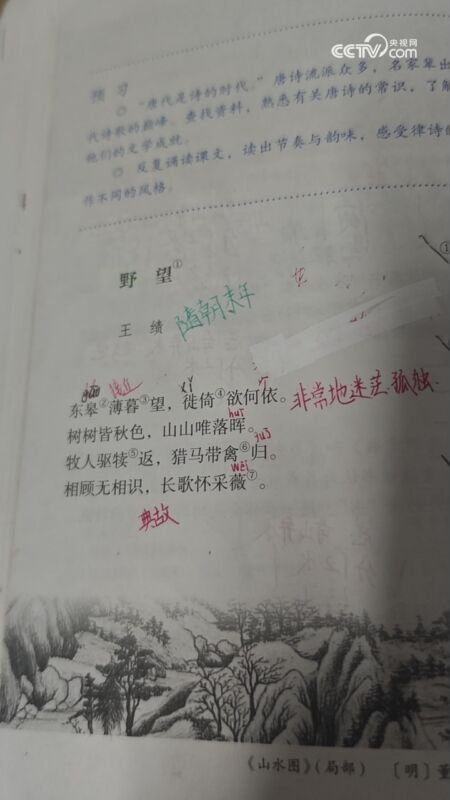 CCTV 央视网
com
预 习
◎ “唐代是诗的时代。”唐诗流派众多,名家辈出
代诗歌的巅峰。查找资料,熟悉有关唐诗的常识,了解
他们的文学成就。
◎ 反复诵读课文,读出节奏与韵味,感受律诗的
作不同的风格。
野 望①
王 绩 隋朝末年
东皋②薄暮③望,徙倚④欲何依。 非常地迷茫.孤独.
huī
树树皆秋色,山山唯落晖。
牧人驱犊⑤返,猎马带禽⑥归。
wēi
相顾无相识,长歌怀采薇⑦。
典故
《山水图》(局部) 〔明〕董